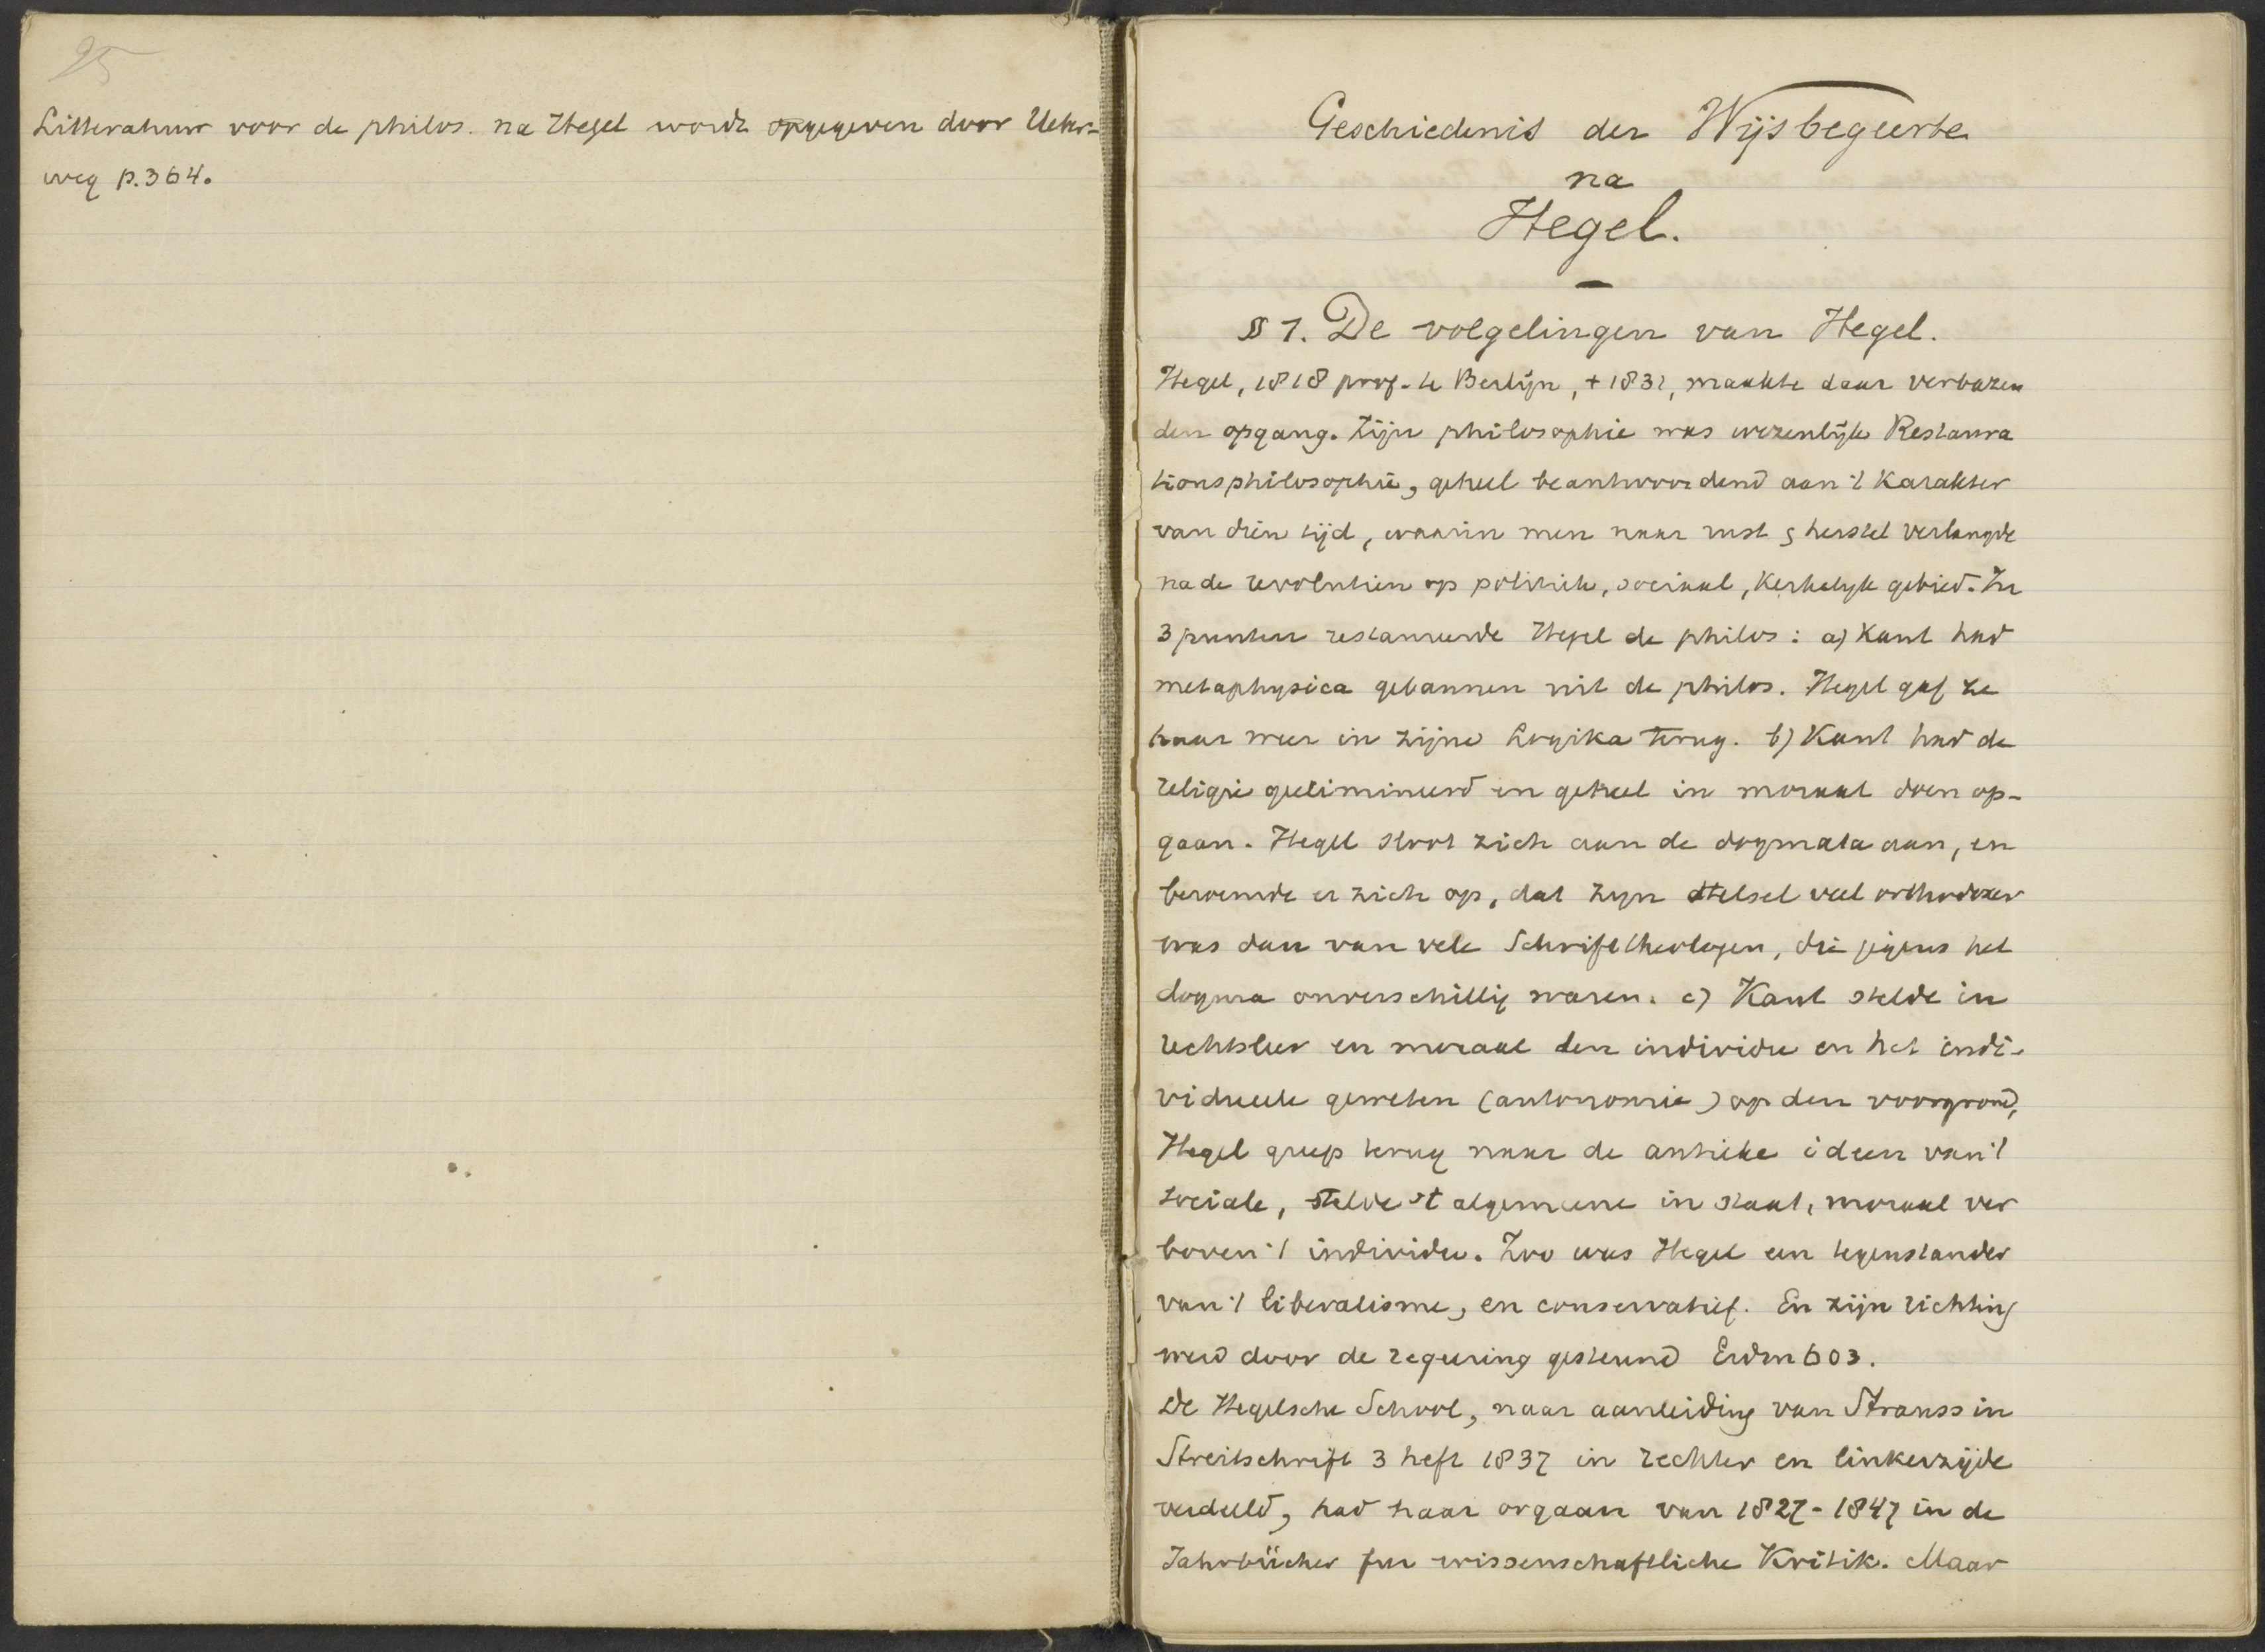 25
Litteratuur voor de philos. na Hegel wordt opgegeven door Ueber-
weg p. 364.
Geschiedenis der Wijsbegeerte
na
Hegel.
§ 1. De volgelingen van Hegel.
Hegel, 1818 prof. te Berlijn, + 1831, maakte daar verbazen
den opgang. Zijn philosophie was wezenlijk Restaura
tionsphilosophie, geheel beantwoordend aan 't karakter
van dien tijd, waarin men naar rust & herstel verlangde
na de revolutien op politiek, sociaal, kerkelyk gebied. In
3 punten restaureerde Hegel de philos: a) Kant had
metaphysica gebannen uit de philos. Hegel gaf ze
haar weer in zijne Logika terug. b) Kant had de
religie geelimineerd en geheel in moraal doen op-
gaan. Hegel sloot zich aan de dogmata aan, en
beroemde er zich op, dat zyn stelsel veel orthodoxer
was dan van vele Schrifttheologen, die jegens het
dogma onverschillig waren. c) Kant stelde in
rechtsleer en moraal den individu en het indi-
vidueele geweten (autonomie) op den voorgrond,
Hegel greep terug naar de antieke ideen van 't
sociale, stelde 't algemeene in staat, moraal ver
boven 't individu. Zoo was Hegel een tegenstander
van 't liberalisme, en conservatief. En zijn richting
werd door de regeering gesteund Erdm 603.
De Hegelsche School, naar aanleiding van Strauss in
Streitschrift 3 heft 1837 in rechter en linkerzijde
verdeeld, had haar orgaan van 1827-1847 in de
Jahrbücher fur wissenschaftliche Kritik. Maar